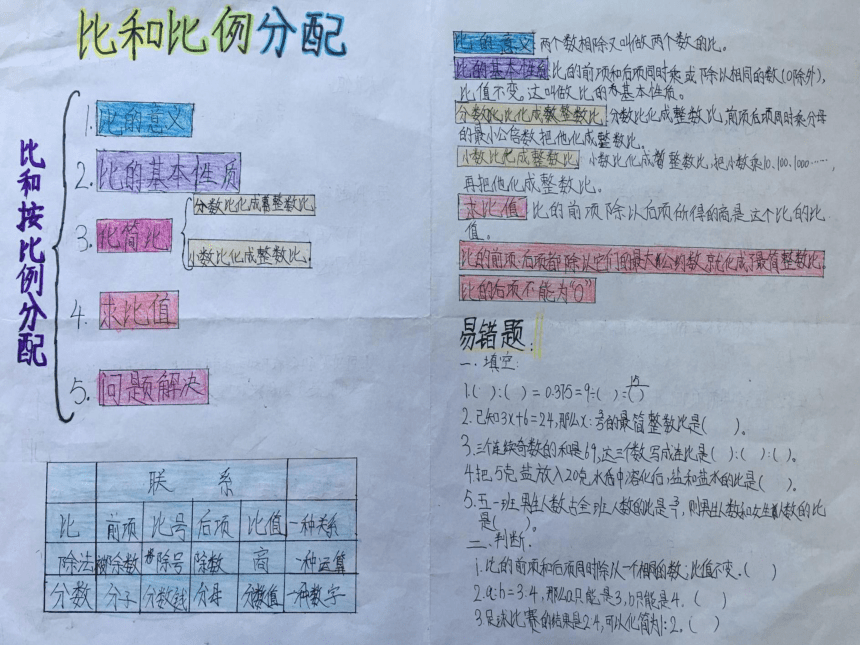 比和比例分配
比和按比例分配
1. 比的意义
2. 比的基本性质
3. 比简比
分数比化成整数比
小数比化成整数比.
4. 求比值
5. 问题解决
联 系
比 前项 比号 后项 比值 一种关系
除法 被除数 除号 除数 商 一种运算
分数 分子 分数线 分母 分数值 一种数字
比的意义 两个数相除又叫做两个数的比。
比的基本性质 比的前项和后项同时乘或除以相同的数(0除外),
比值不变。这叫做比的基本性质。
分数比化成整数比:分数比化成整数比,前项后项同时乘分母
的最小公倍数把他化成整数比。
小数比化成整数比 小数比化成整数比,把小数乘10.100.1000……,
再把他化成整数比。
求比值 比的前项除以后项所得的商是这个比的比
值。
比的前项、后项都除以它们的最大公约数,就化成了最简整数比.
比的后项不能为“0”
易错题:
一.填空:
1.( ):( )=0.375=9÷( )=15/( )
2.已知3x+6=24,那么x:的最简整数比是( )。
3.三个连续奇数的和是69,这三个数写成连比是( ):( ):( )。
4.把5克盐放入20克水中溶化后,盐和盐水的比是( )。
5.五一班男生人数占全班人数的比是,则男生人数和女生人数的比
是( )。
二.判断.
1.比的前项和后项同时除以一个相同的数,比值不变.( )
2.a:b=3:4,那么a只能是3,b只能是4.( )
3.足球比赛的结果是2:4,可以化简为1:2。( )